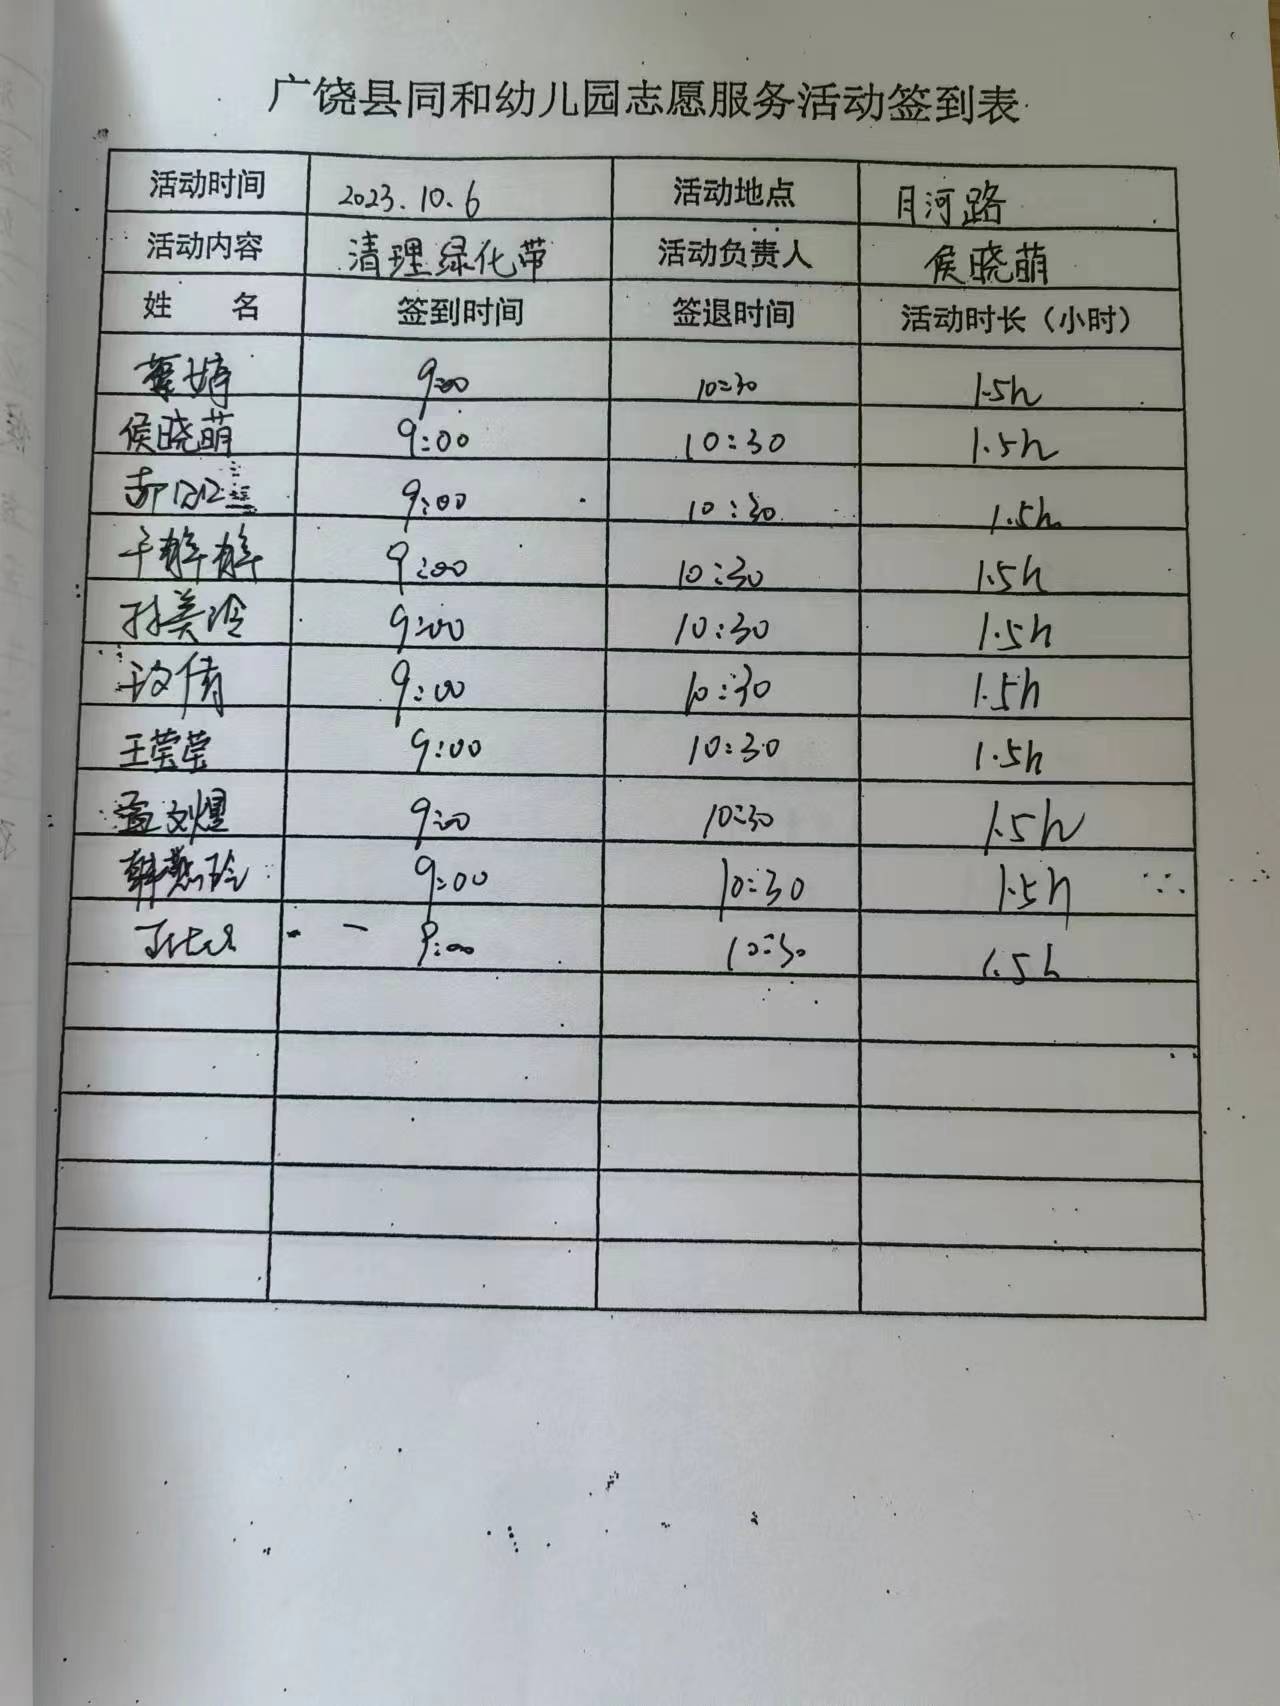 广饶县同和幼儿园志愿服务活动签到表
活动时间 2023.10.6 活动地点 月河路
活动内容 清理绿化带 活动负责人 侯晓萌
姓 名 签到时间 签退时间 活动时长（小时）
婷 9:00 10:30 1.5h
侯晓萌 9:00 10:30 1.5h
9:00 10:30 1.5h
9:00 10:30 1.5h
孙美玲 9:00 10:30 1.5h
倩 9:00 10:30 1.5h
王莹莹 9:00 10:30 1.5h
孟文煜 9:00 10:30 1.5h
韩燕玲 9:00 10:30 1.5h
9:00 10:30 1.5h